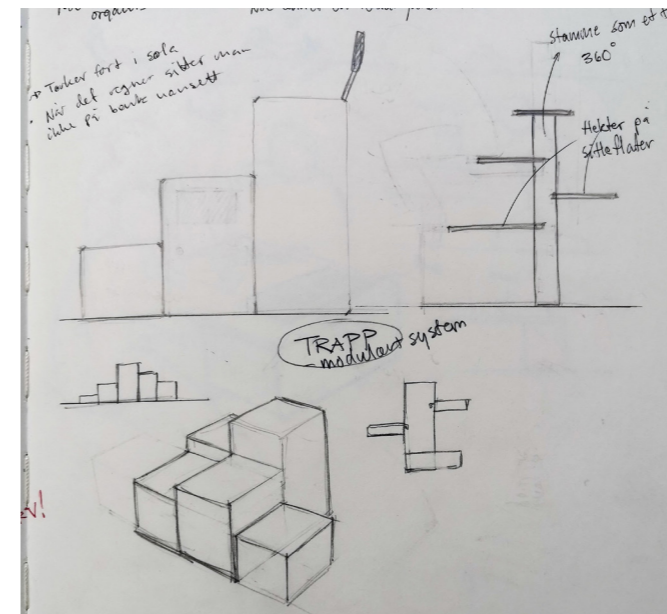 organis
→ Tørker fort i sola
• Når det regner sitter man
ikke på benk uansett
stamme som et t
360°
Hekter på
sitteflater
TRAPP
- modulært system
v!